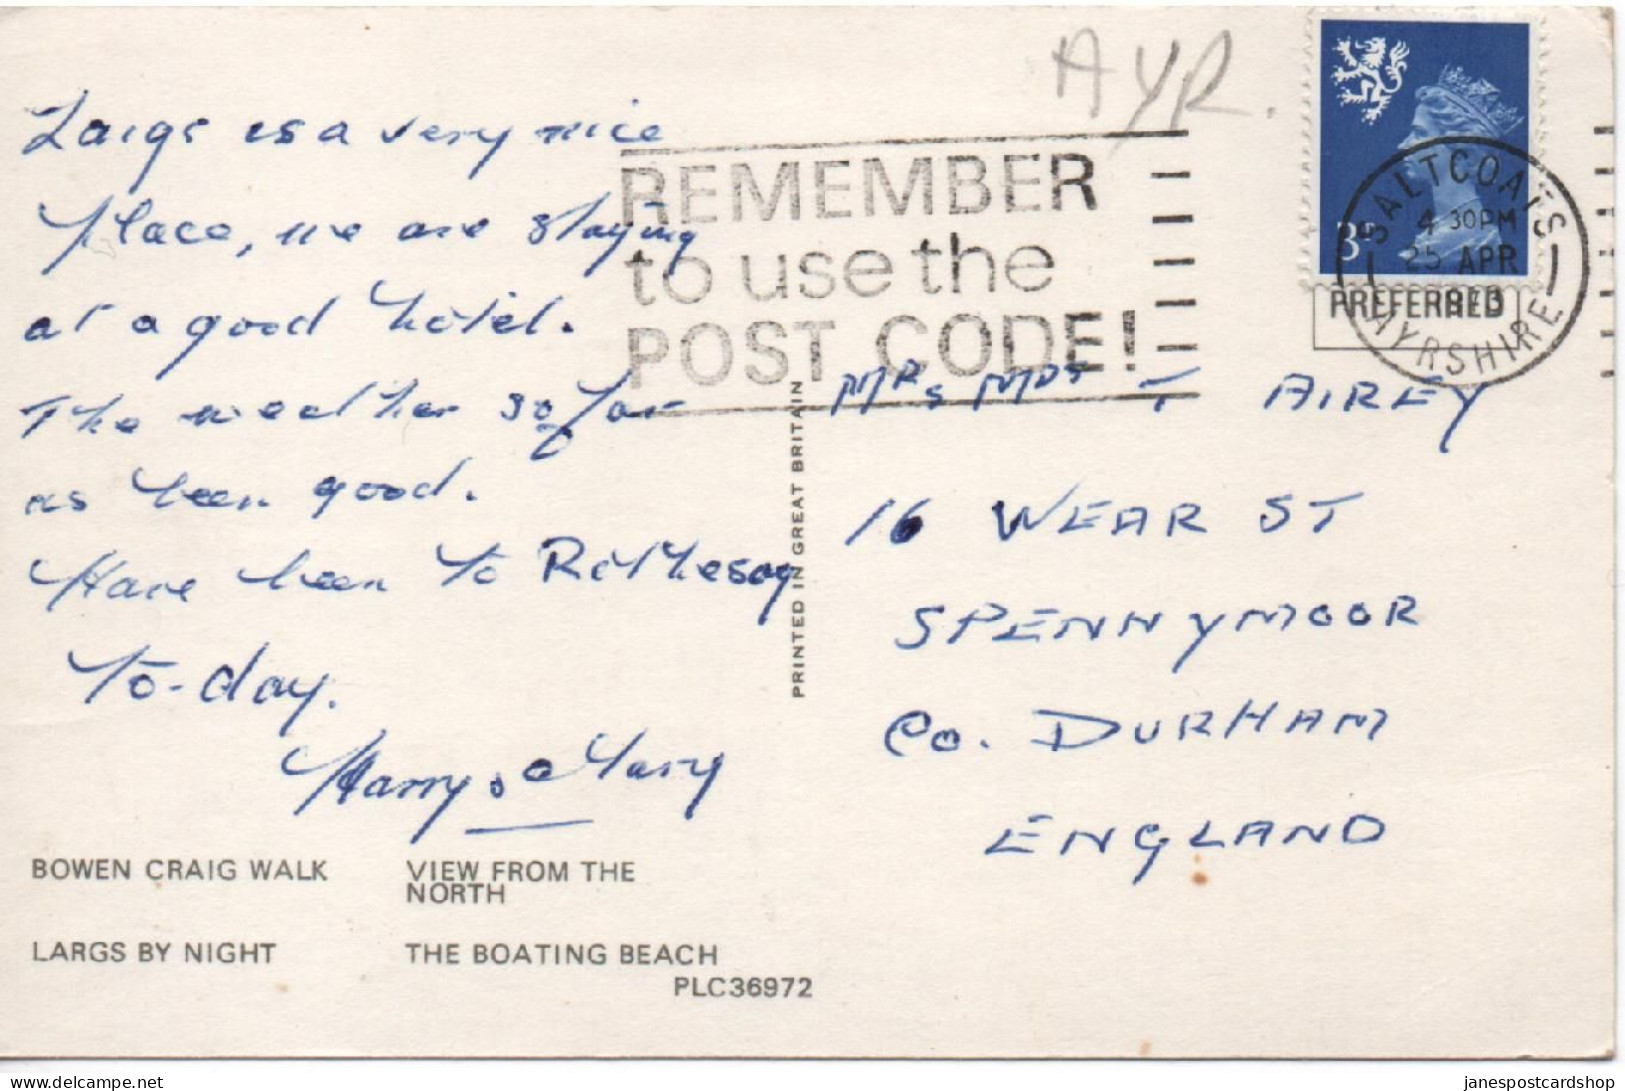 AYR.
Largs is a very nice
place, we are staying
at a good hotel.
The weather so far
as been good.
Have been to Rothesay
to-day.
Harry & Mary
REMEMBER
to use the
POST CODE!
3P
SALTCOATS
4 30PM
25 APR
1973
AYRSHIRE
PREFERRED
T AIREY
16 WEAR ST
SPENNYMOOR
CO. DURHAM
ENGLAND
PRINTED IN GREAT BRITAIN
BOWEN CRAIG WALK
VIEW FROM THE
NORTH
LARGS BY NIGHT
THE BOATING BEACH
PLC36972
delcampe.net
janespostcardshop